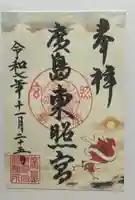 奉拝
廣島東照宮
令和七年十一月二十五日